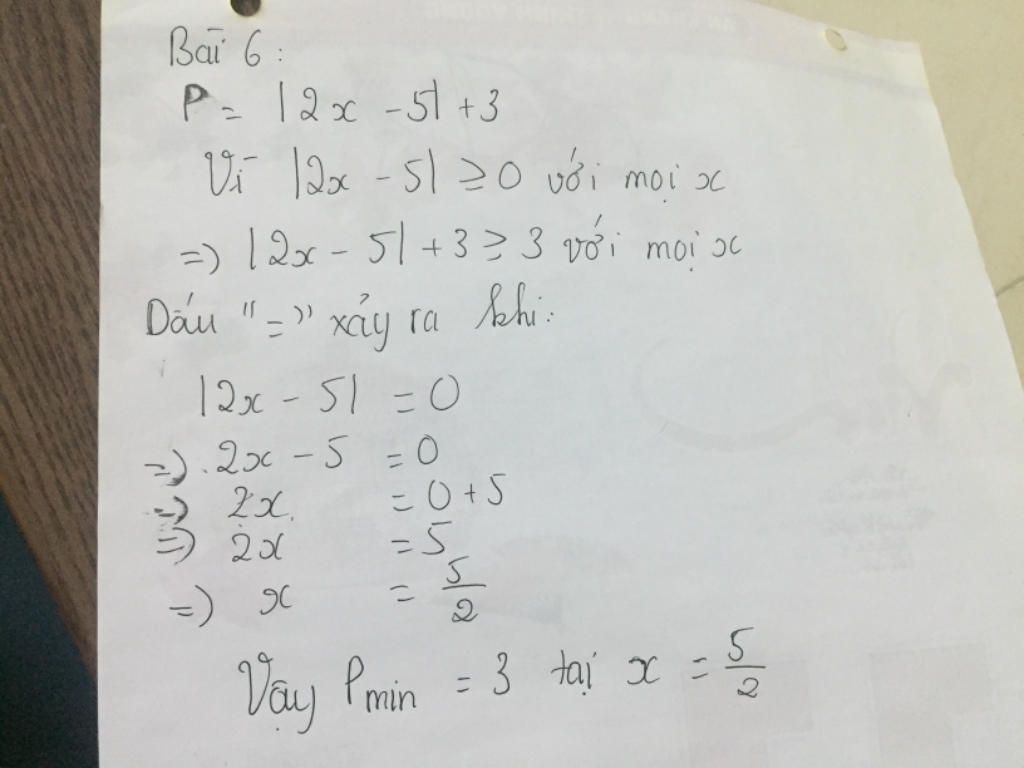 Bài 6:
P = |2x - 5| + 3
Vì |2x - 5| ≥ 0 với mọi x
=> |2x - 5| + 3 ≥ 3 với mọi x
Dấu "=" xảy ra khi:
|2x - 5| = 0
=> 2x - 5 = 0
=> 2x = 0 + 5
=> 2x = 5
=> x = 5/2
Vậy Pmin = 3 tại x = 5/2